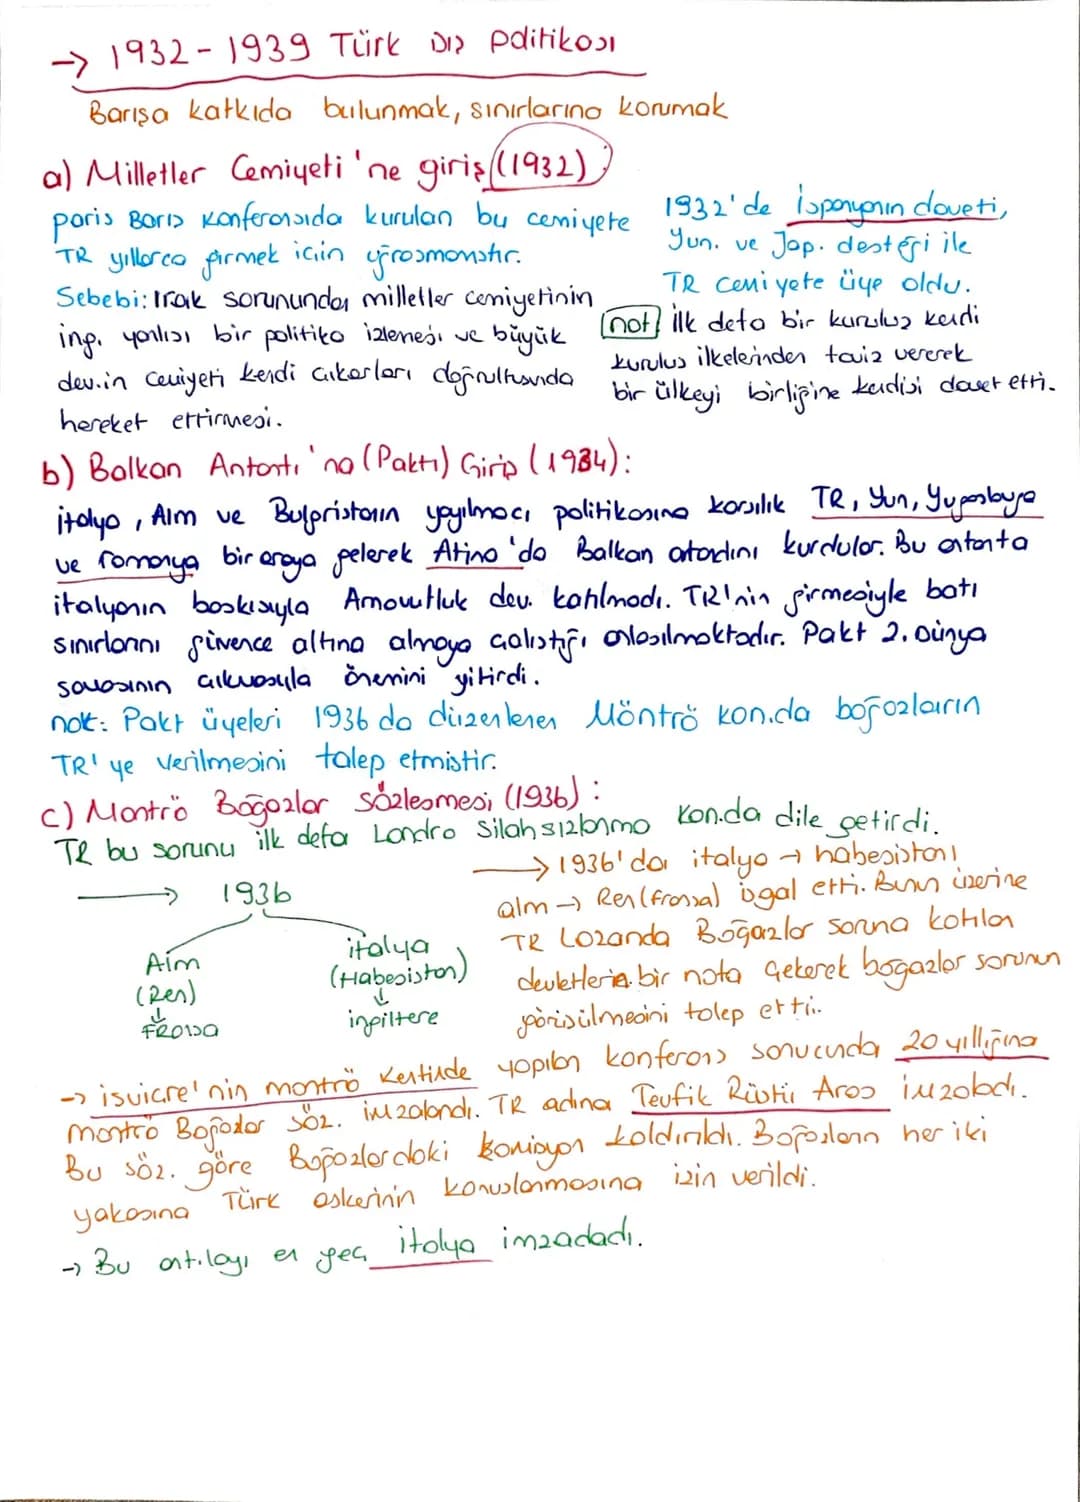 → 1932-1939 Türk Dış Politikası
Barışa katkıda bulunmak, sınırlarına korumak
a) Milletler Cemiyeti'ne giriş (1932)
Paris Barış Konferansıda kurulan bu cemiyete
TR yıllarca girmek için uğraşmamıştır.
Sebebi: Irak sorununda, milletler cemiyetinin
ing. yanlısı bir politika izlemesi ve büyük
dev.in cemiyeti kendi çıkarları doğrultusunda
hereket ettirmesi.
1932'de İspanyanın daveti,
Yun. ve Jap. desteği ile
TR cemiyete üye oldu.
not İlk defa bir kuruluş kendi
kuruluş ilkelerinden taviz vererek
bir ülkeyi birliğine kendisi davet etti.
b) Balkan Antantı'na (Paktı) Giriş (1934):
italya, Alm ve Bulgristanın yayılmacı politikasına karşılık TR, Yun, Yugoslavya
ve romanya bir araya gelerek Atina'da Balkan antandını kurdular. Bu antanta
italyanın baskısıyla Arnavutluk dev. katılmadı. TR'nin girmesiyle batı
sınırlarını güvence altına almaya çalıştığı anlaşılmaktadır. Pakt 2. Dünya
savaşının çıkmasıyla önemini yitirdi.
not: Pakt üyeleri 1936 da düzenlenen Möntrö kon.da boğozların
TR'ye verilmesini talep etmiştir.
c) Montrö Boğazlar Sözleşmesi (1936):
TR bu sorunu ilk defa Londra Silahsızlanma kon.da dile getirdi.
→ 1936
Alm
(Ren)
↓
Fransa
italya
(Habeşistan)
↓
ingiltere
→ 1936'da italya → habeşistanı
alm → Ren (fransa) işgal etti. Bunun üzerine
TR Lozanda Boğazlar soruna katılan
devletlerin bir nota çekerek boğazlar sorunun
görüşülmesini talep etti.
→ isviçre'nin montrö kentinde yapılan konferans sonucunda 20 yıllığına
montrö Boğazlar söz. imzalandı. TR adına Tevfik Rüştü Aras imzaladı.
Bu söz. göre Boğazlardaki komisyon kaldırıldı. Boğazların her iki
yakasına Türk askerinin konuşlanmasına izin verildi.
→ Bu ant.layı en geç italya imzadadı.